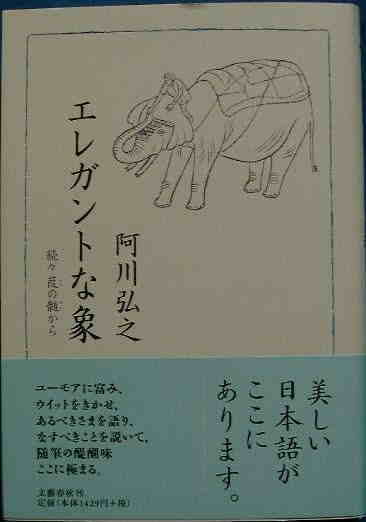 エレガントな象
続々 葭の髄から
阿川弘之
美しい
日本語が
ここに
あります。
ユーモアに富み、
ウイットをきかせ、
あるべきさまを語り、
なすべきことを説いて、
随筆の醍醐味
ここに極まる。
文藝春秋刊
定価（本体1429円＋税）